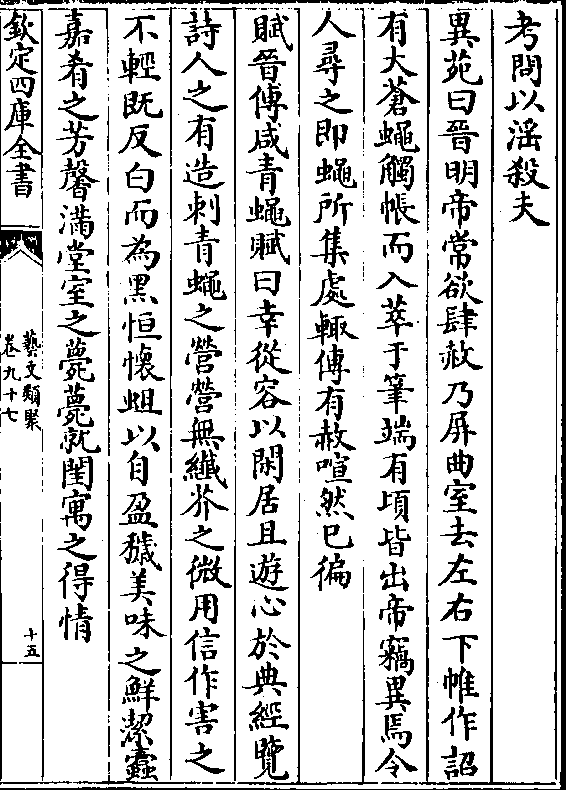 考問以淫殺夫
異苑曰晉明帝常欲肆赦乃屏曲室去左右下帷作詔
有大蒼蠅觸帳而入萃于筆端有頃皆出帝竊異焉令
人尋之即蠅所集處輙傳有赦喧然已徧
賦晉傅咸青蠅賦曰幸從容以閑居且遊心於典經覽
詩人之有造刺青蠅之營營無纎芥之微用信作害之
不輕既反白而為黑恒懷蛆以自盈穢美味之鮮潔蠧
嘉肴之芳馨滿堂室之薨薨就閨寓之得情
欽定四庫全書
藝文類聚
卷九十七
十五